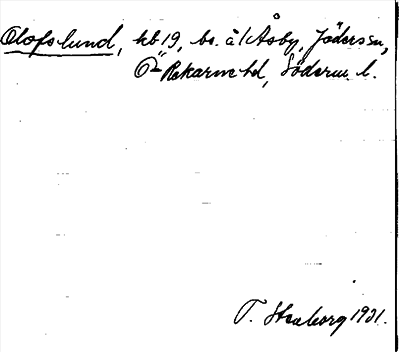 Olofslund, kb 19, bs. å k Åsby, Jäders sn,
Ö Rekarne hd, Söderm. l.
T. Stenborg 1931.